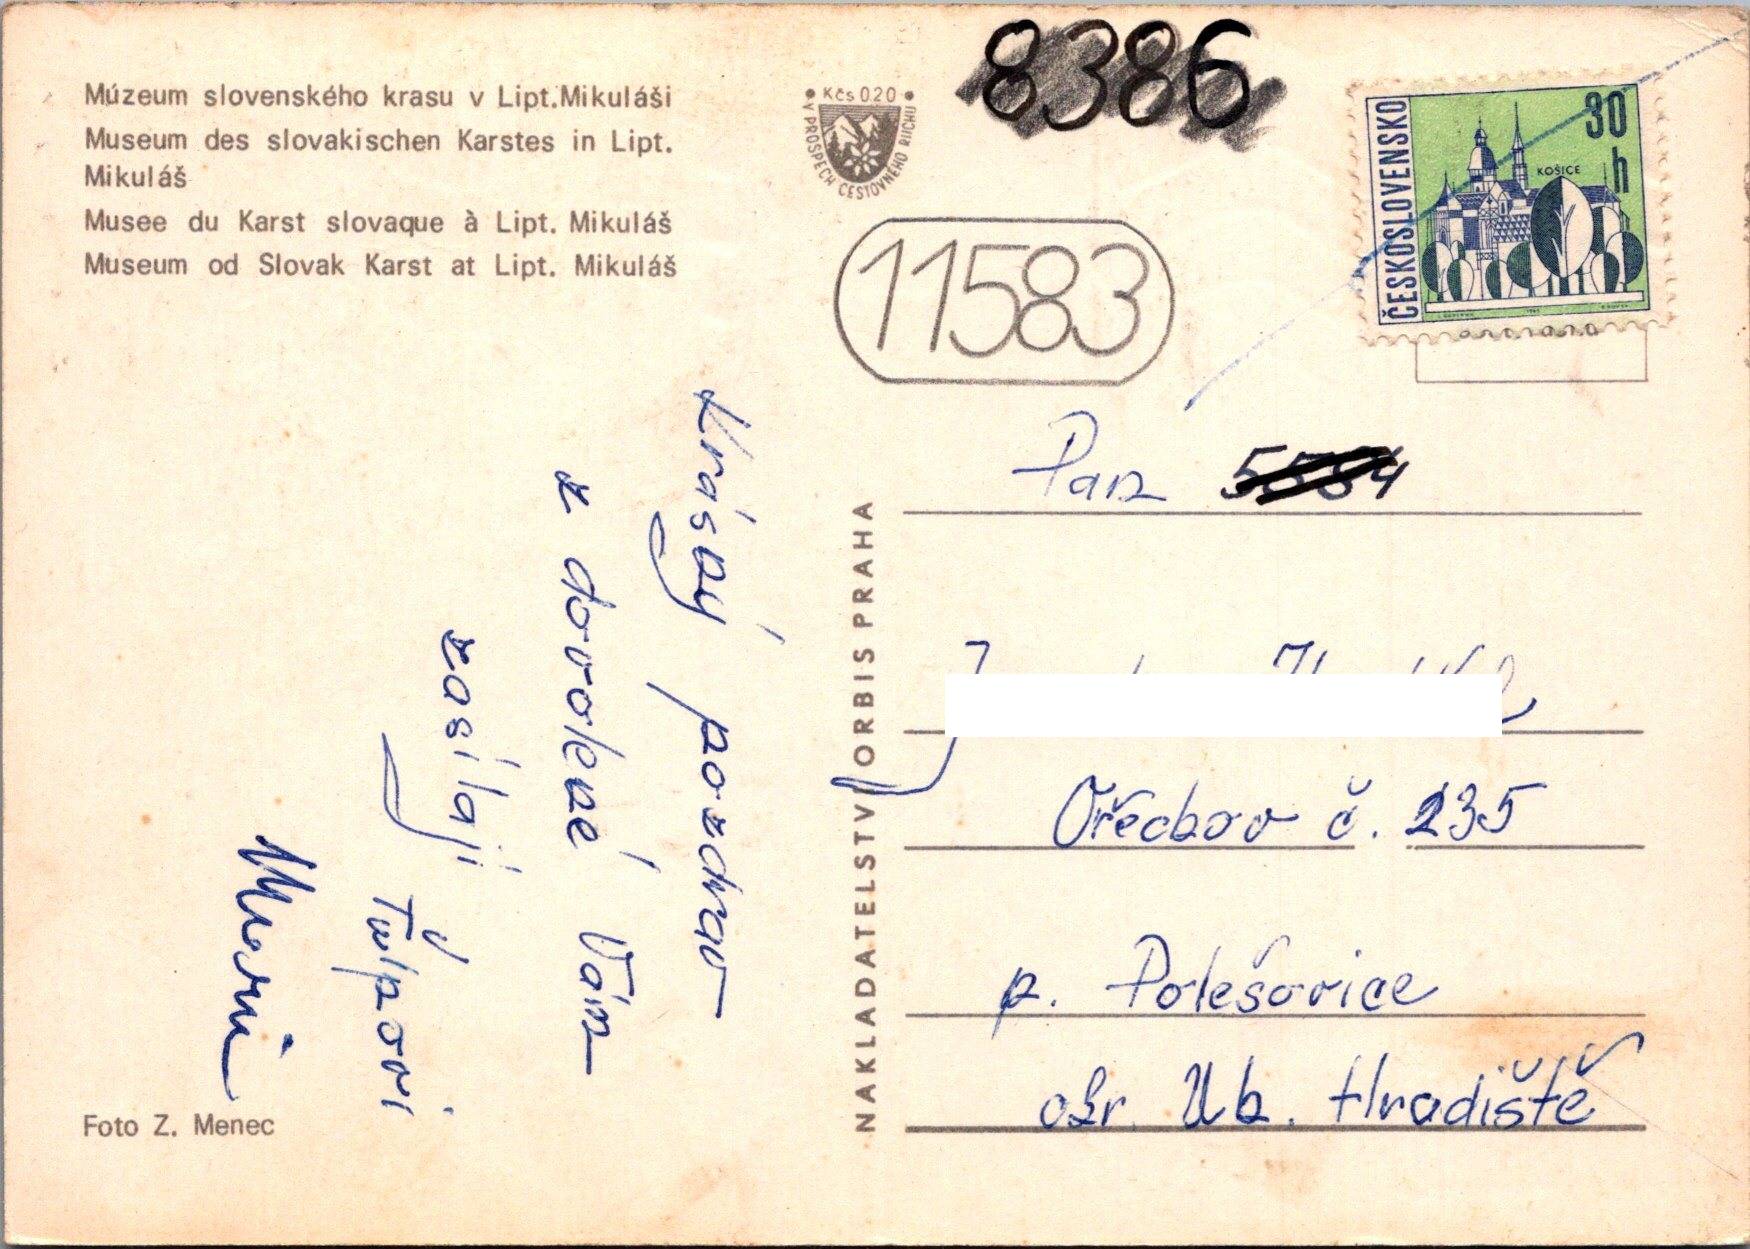 Múzeum slovenského krasu v Lipt.Mikuláši
Museum des slovakischen Karstes in Lipt.
Mikuláš
Musee du Karst slovaque à Lipt. Mikuláš
Museum od Slovak Karst at Lipt. Mikuláš
• Kčs 0.20 •
V PROSPĚCH CESTOVNÉHO RUCHU
8386
11583
ČESKOSLOVENSKO
30
h
KOŠICE
Krásný pozdrav
z dovolené Vám
zasílají
Ťulpovi
NAKLADATELSTVÍ ORBIS PRAHA
Pan 5584
Ořechov č. 235
p. Polešovice
okr. Uh. Hradiště
Foto Z. Menec